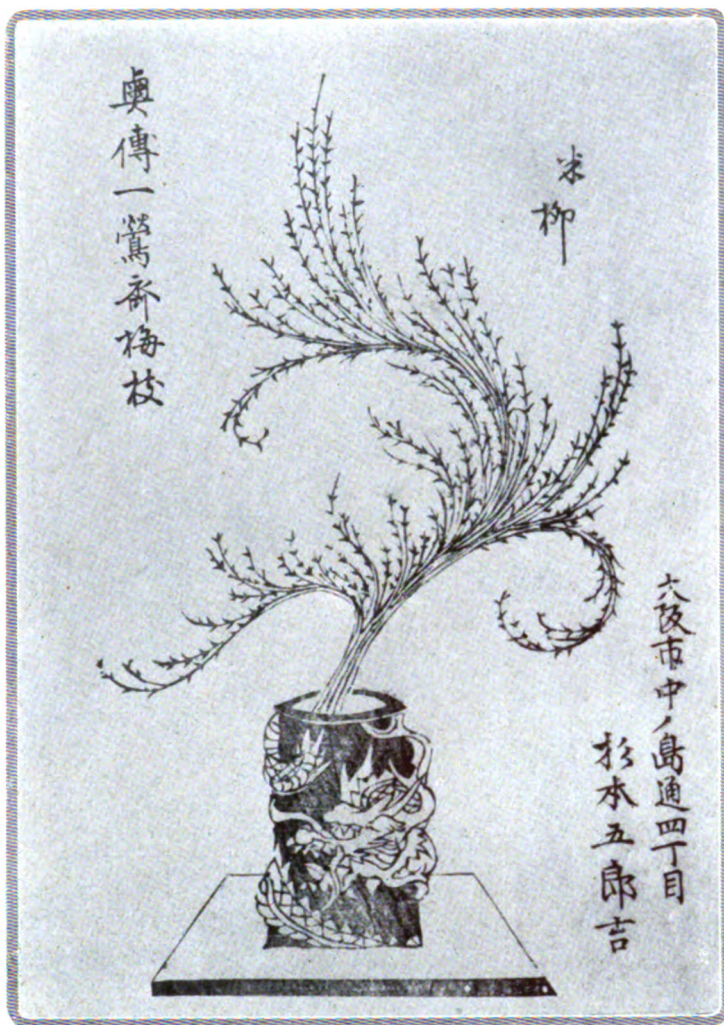 米柳
大阪市中ノ島通四丁目
杉本五郎吉
奧傳一鶯斎梅枝